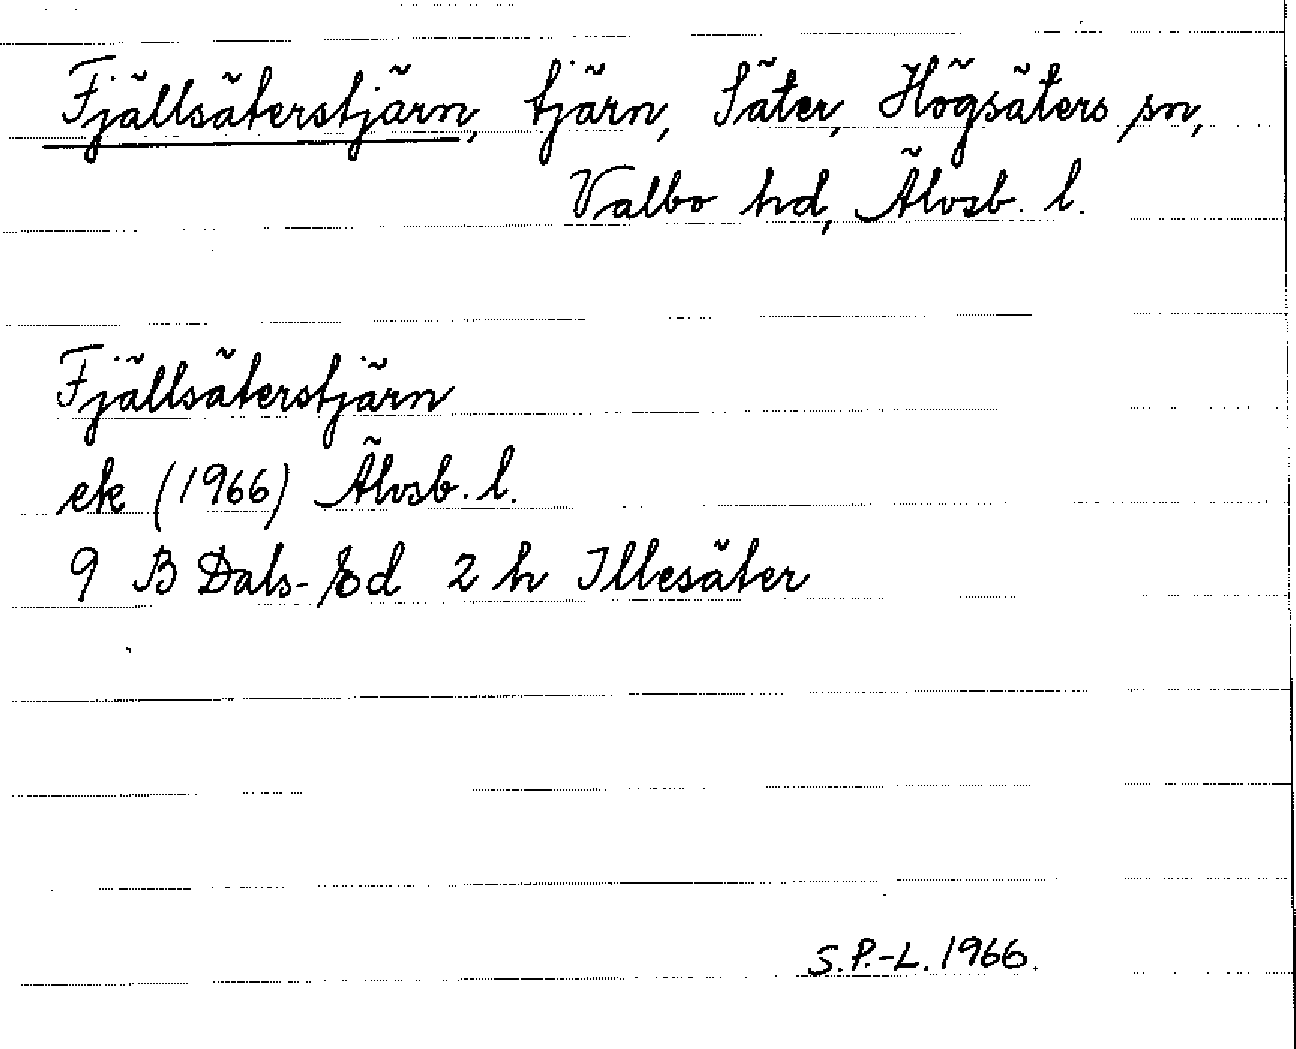 Fjällsäterstjärn, tjärn, Säter, Högsäters sn,
Valbo hd, Älvsb. l.
Fjällsäterstjärn
ek (1966) Älvsb. l.
9 B Dals-Ed 2 h Illesäter
S.P.-L. 1966.